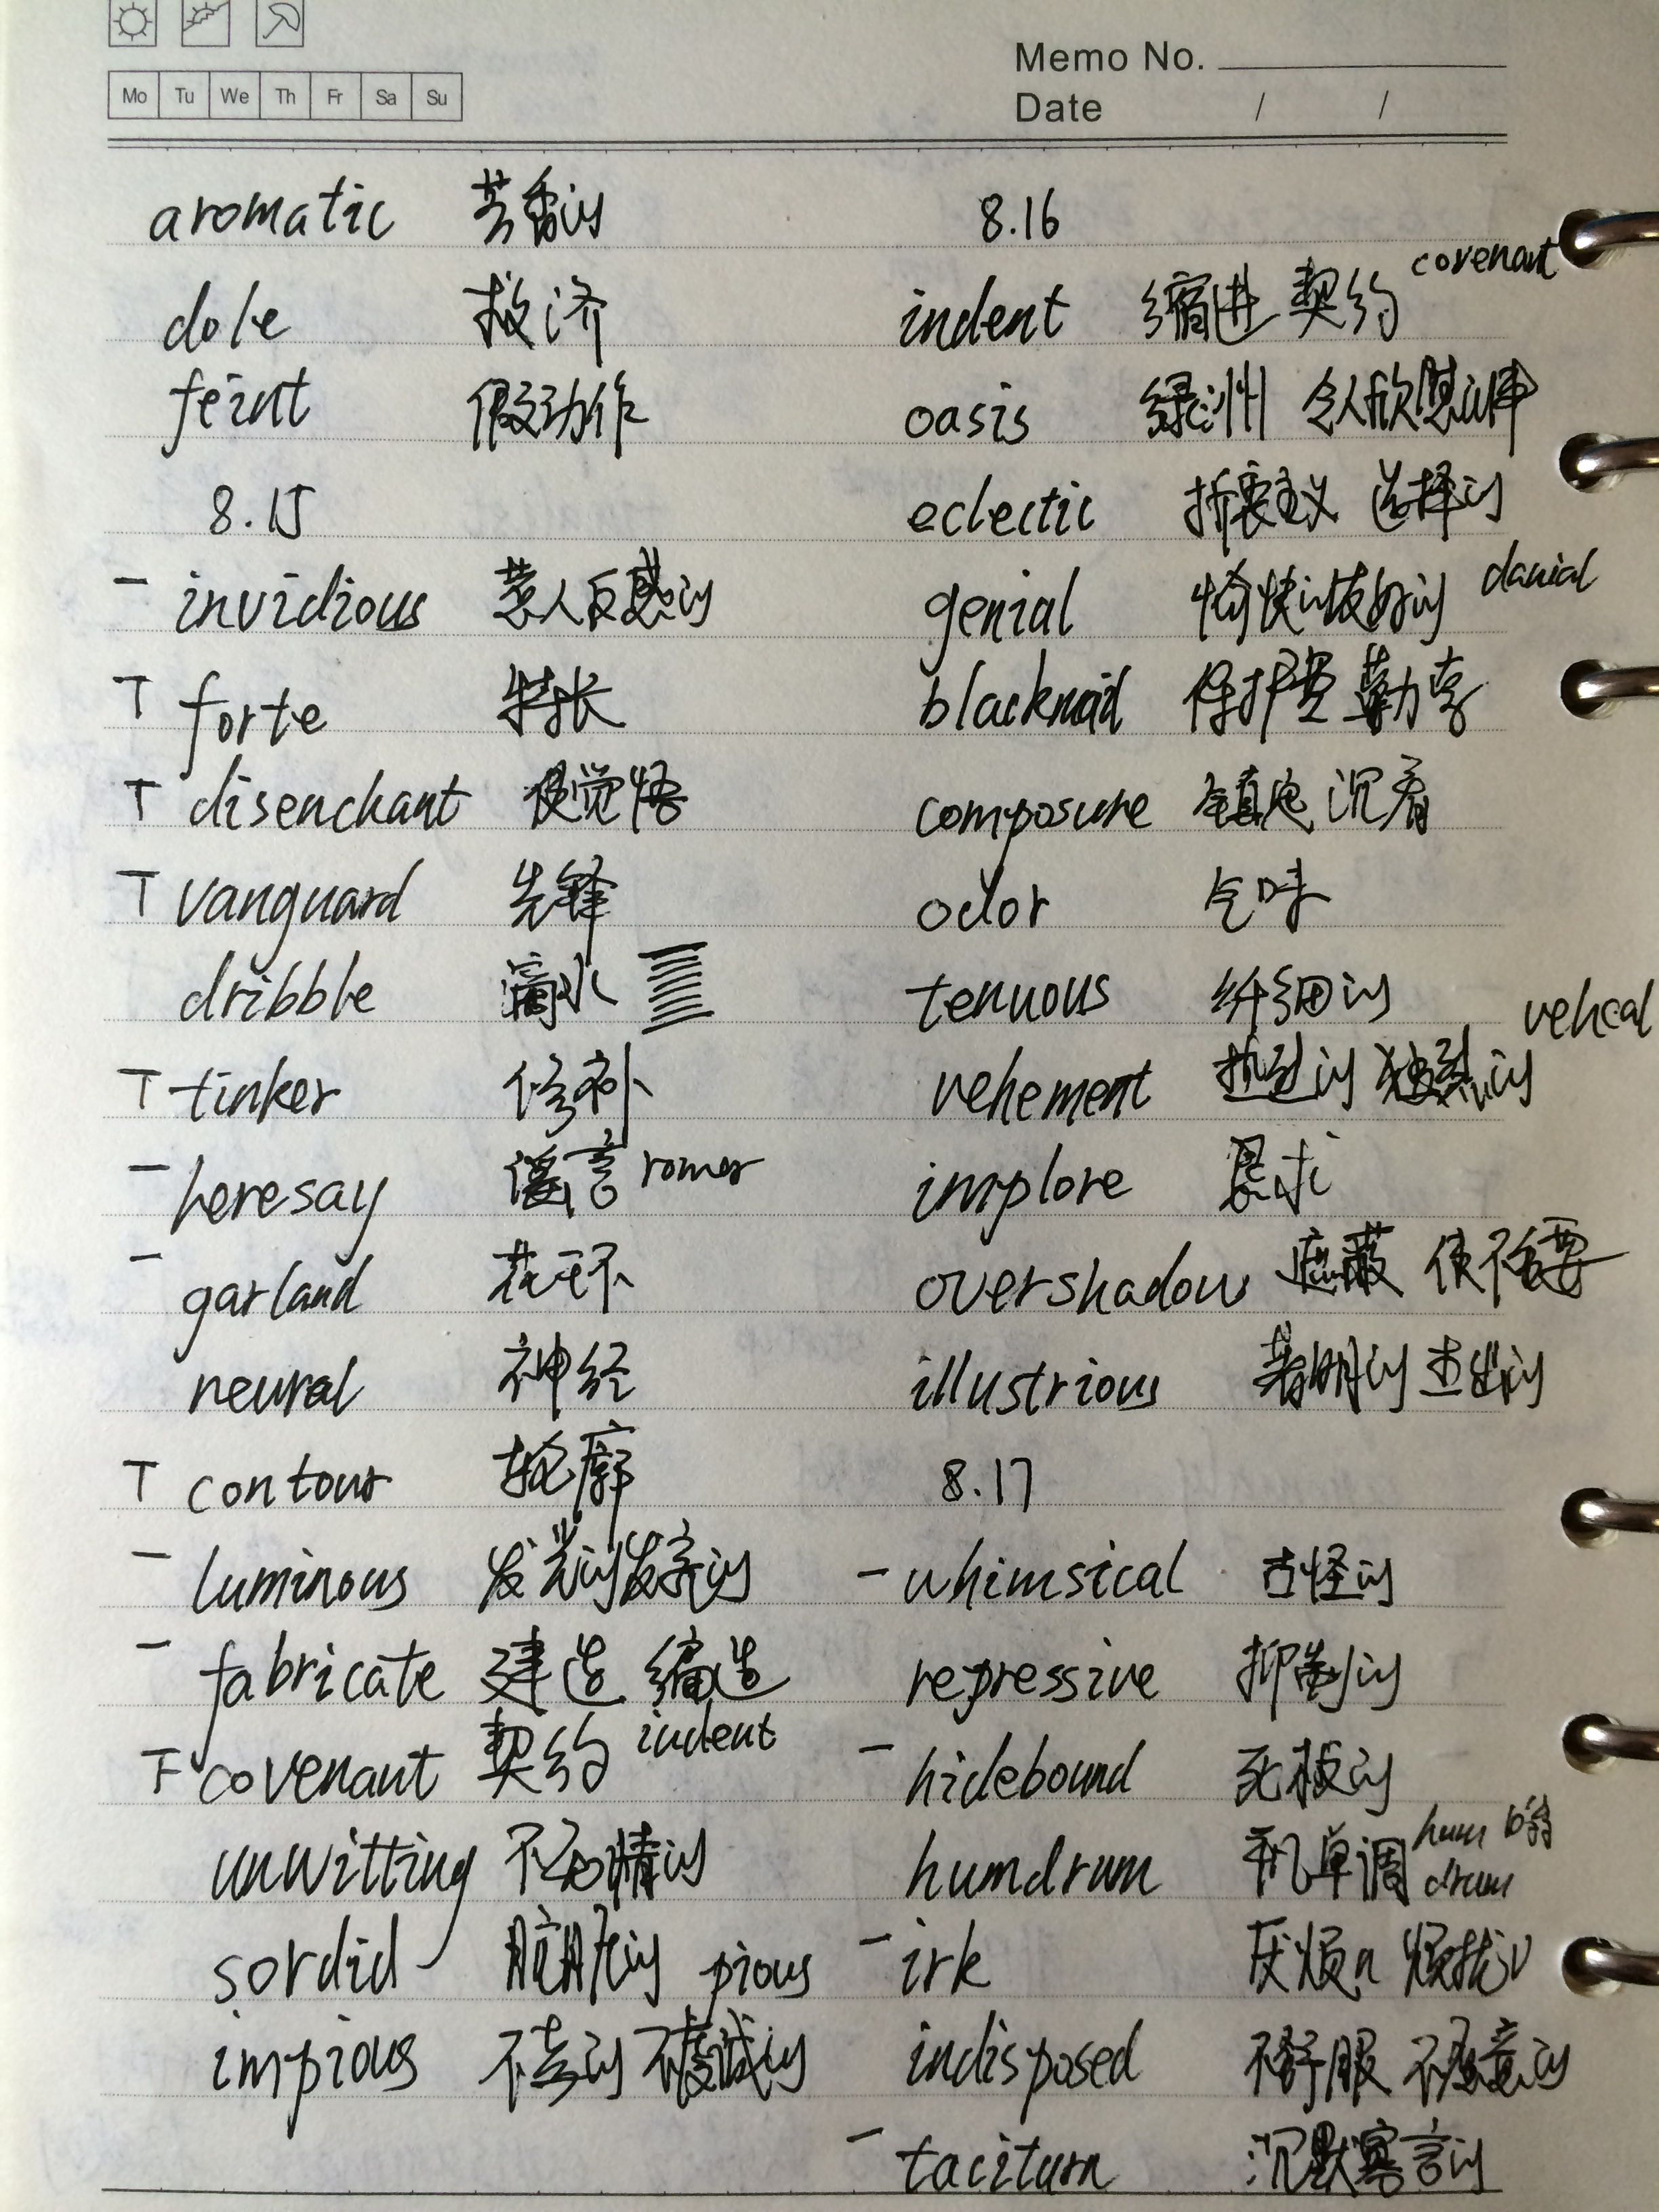 Mo Tu We Th Fr Sa Su
Memo No.
Date / /
aromatic 芳香的
dole 救济
feint 假动作
8.15
— invidious 惹人反感的
T forte 特长
T disenchant 使觉悟
T vanguard 先锋
dribble 滴水
T tinker 修补
— heresay 谣言 romor
— garland 花环
neural 神经
T contour 轮廓
— luminous 发光的发亮的
— fabricate 建造 编造
T covenant 契约 indent
unwitting 不知情的
sordid 肮脏的 pious
impious 不孝的 不虔诚的
8.16
indent 缩进 契约 covenant
oasis 绿洲 令人欣慰的事
eclectic 折衷主义 选择的
genial 愉快的友好的 danial
blackmail 保护费 勒索
composure 镇定 沉着
odor 气味
tenuous 纤细的
vehement 热烈的 猛烈的 vehcal
implore 恳求
overshadow 遮蔽 使不重要
illustrious 著明的 杰出的
8.17
— whimsical 古怪的
repressive 抑制的
— hidebound 死板的
humdrum 单调 hum 嗡 drum
— irk 厌烦n 烦扰v
indisposed 不舒服 不愿意的
— taciturn 沉默寡言的